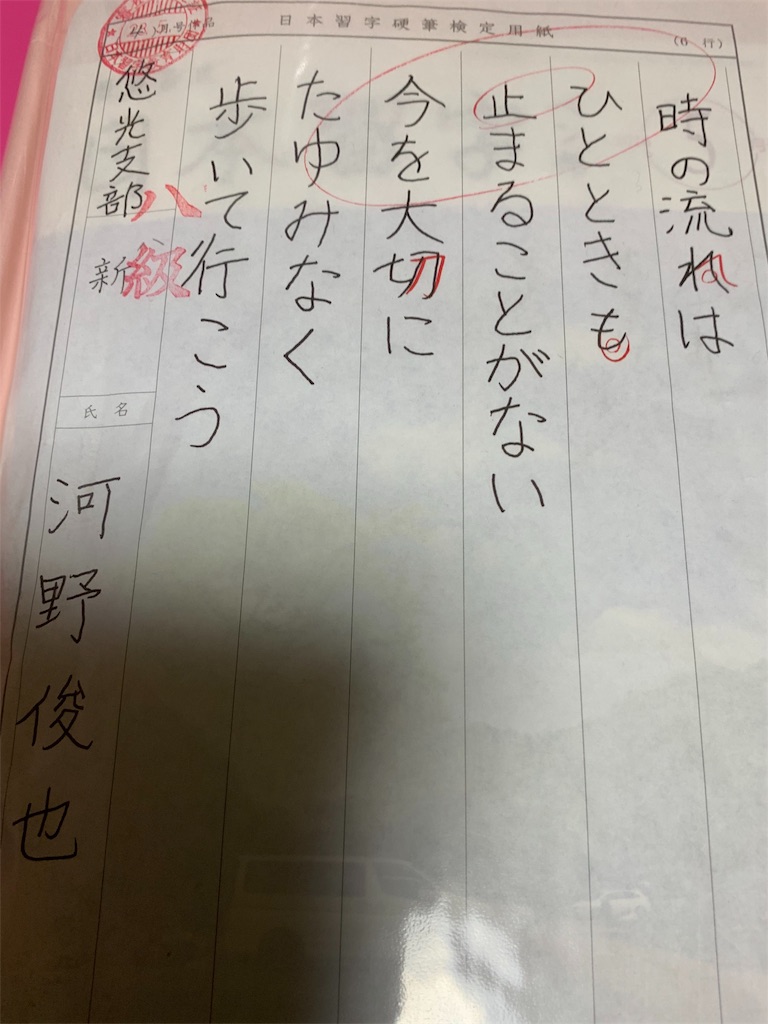 日本習字硬筆検定用紙
(6 行)
時の流れは
ひとときも
止まることがない
今を大切に
たゆみなく
歩いて行こう
月号
品
悠光支部
八級
新
氏名
河野俊也